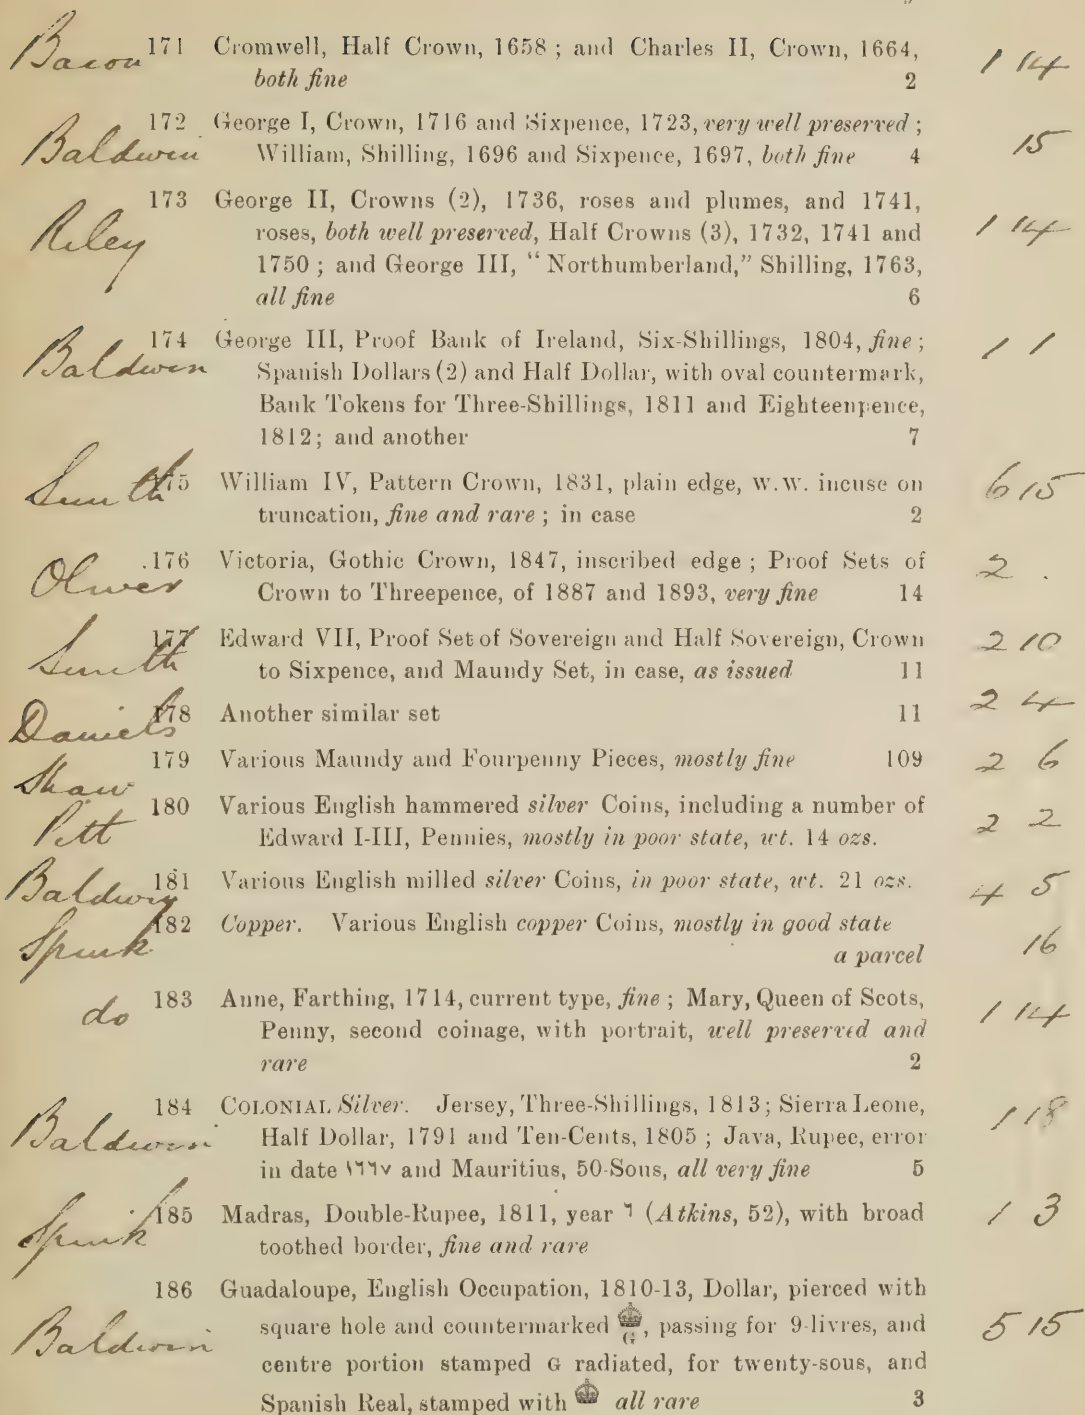 Bacon 171 Cromwell, Half Crown, 1658 ; and Charles II, Crown, 1664, 1 14
both fine 2
Baldwin 172 George I, Crown, 1716 and Sixpence, 1723, very well preserved ; 15
William, Shilling, 1696 and Sixpence, 1697, both fine 4
Riley 173 George II, Crowns (2), 1736, roses and plumes, and 1741, 1 14
roses, both well preserved, Half Crowns (3), 1732, 1741 and
1750 ; and George III, “Northumberland,” Shilling, 1763,
all fine 6
Baldwin 174 George III, Proof Bank of Ireland, Six-Shillings, 1804, fine ; 1 1
Spanish Dollars (2) and Half Dollar, with oval countermark,
Bank Tokens for Three-Shillings, 1811 and Eighteenpence,
1812; and another 7
Smith 175 William IV, Pattern Crown, 1831, plain edge, W.W. incuse on 6 15
truncation, fine and rare ; in case 2
Oliver 176 Victoria, Gothic Crown, 1847, inscribed edge ; Proof Sets of 2 .
Crown to Threepence, of 1887 and 1893, very fine 14
Smith 177 Edward VII, Proof Set of Sovereign and Half Sovereign, Crown 2 10
to Sixpence, and Maundy Set, in case, as issued 11
Daniels 178 Another similar set 11 2 4
Shaw 179 Various Maundy and Fourpenny Pieces, mostly fine 109 2 6
Pitt 180 Various English hammered silver Coins, including a number of 2 2
Edward I-III, Pennies, mostly in poor state, wt. 14 ozs.
Baldwin 181 Various English milled silver Coins, in poor state, wt. 21 ozs. 4 5
Spink 182 Copper. Various English copper Coins, mostly in good state 16
a parcel
do 183 Anne, Farthing, 1714, current type, fine ; Mary, Queen of Scots, 1 14
Penny, second coinage, with portrait, well preserved and
rare 2
Baldwin 184 COLONIAL Silver. Jersey, Three-Shillings, 1813; Sierra Leone, 1 18
Half Dollar, 1791 and Ten-Cents, 1805 ; Java, Rupee, error
in date ١٦٦٧ and Mauritius, 50-Sous, all very fine 5
Spink 185 Madras, Double-Rupee, 1811, year ٦ (Atkins, 52), with broad 1 3
toothed border, fine and rare
186 Guadaloupe, English Occupation, 1810-13, Dollar, pierced with
Baldwin square hole and countermarked G, passing for 9-livres, and 5 15
centre portion stamped G radiated, for twenty-sous, and
Spanish Real, stamped with all rare 3